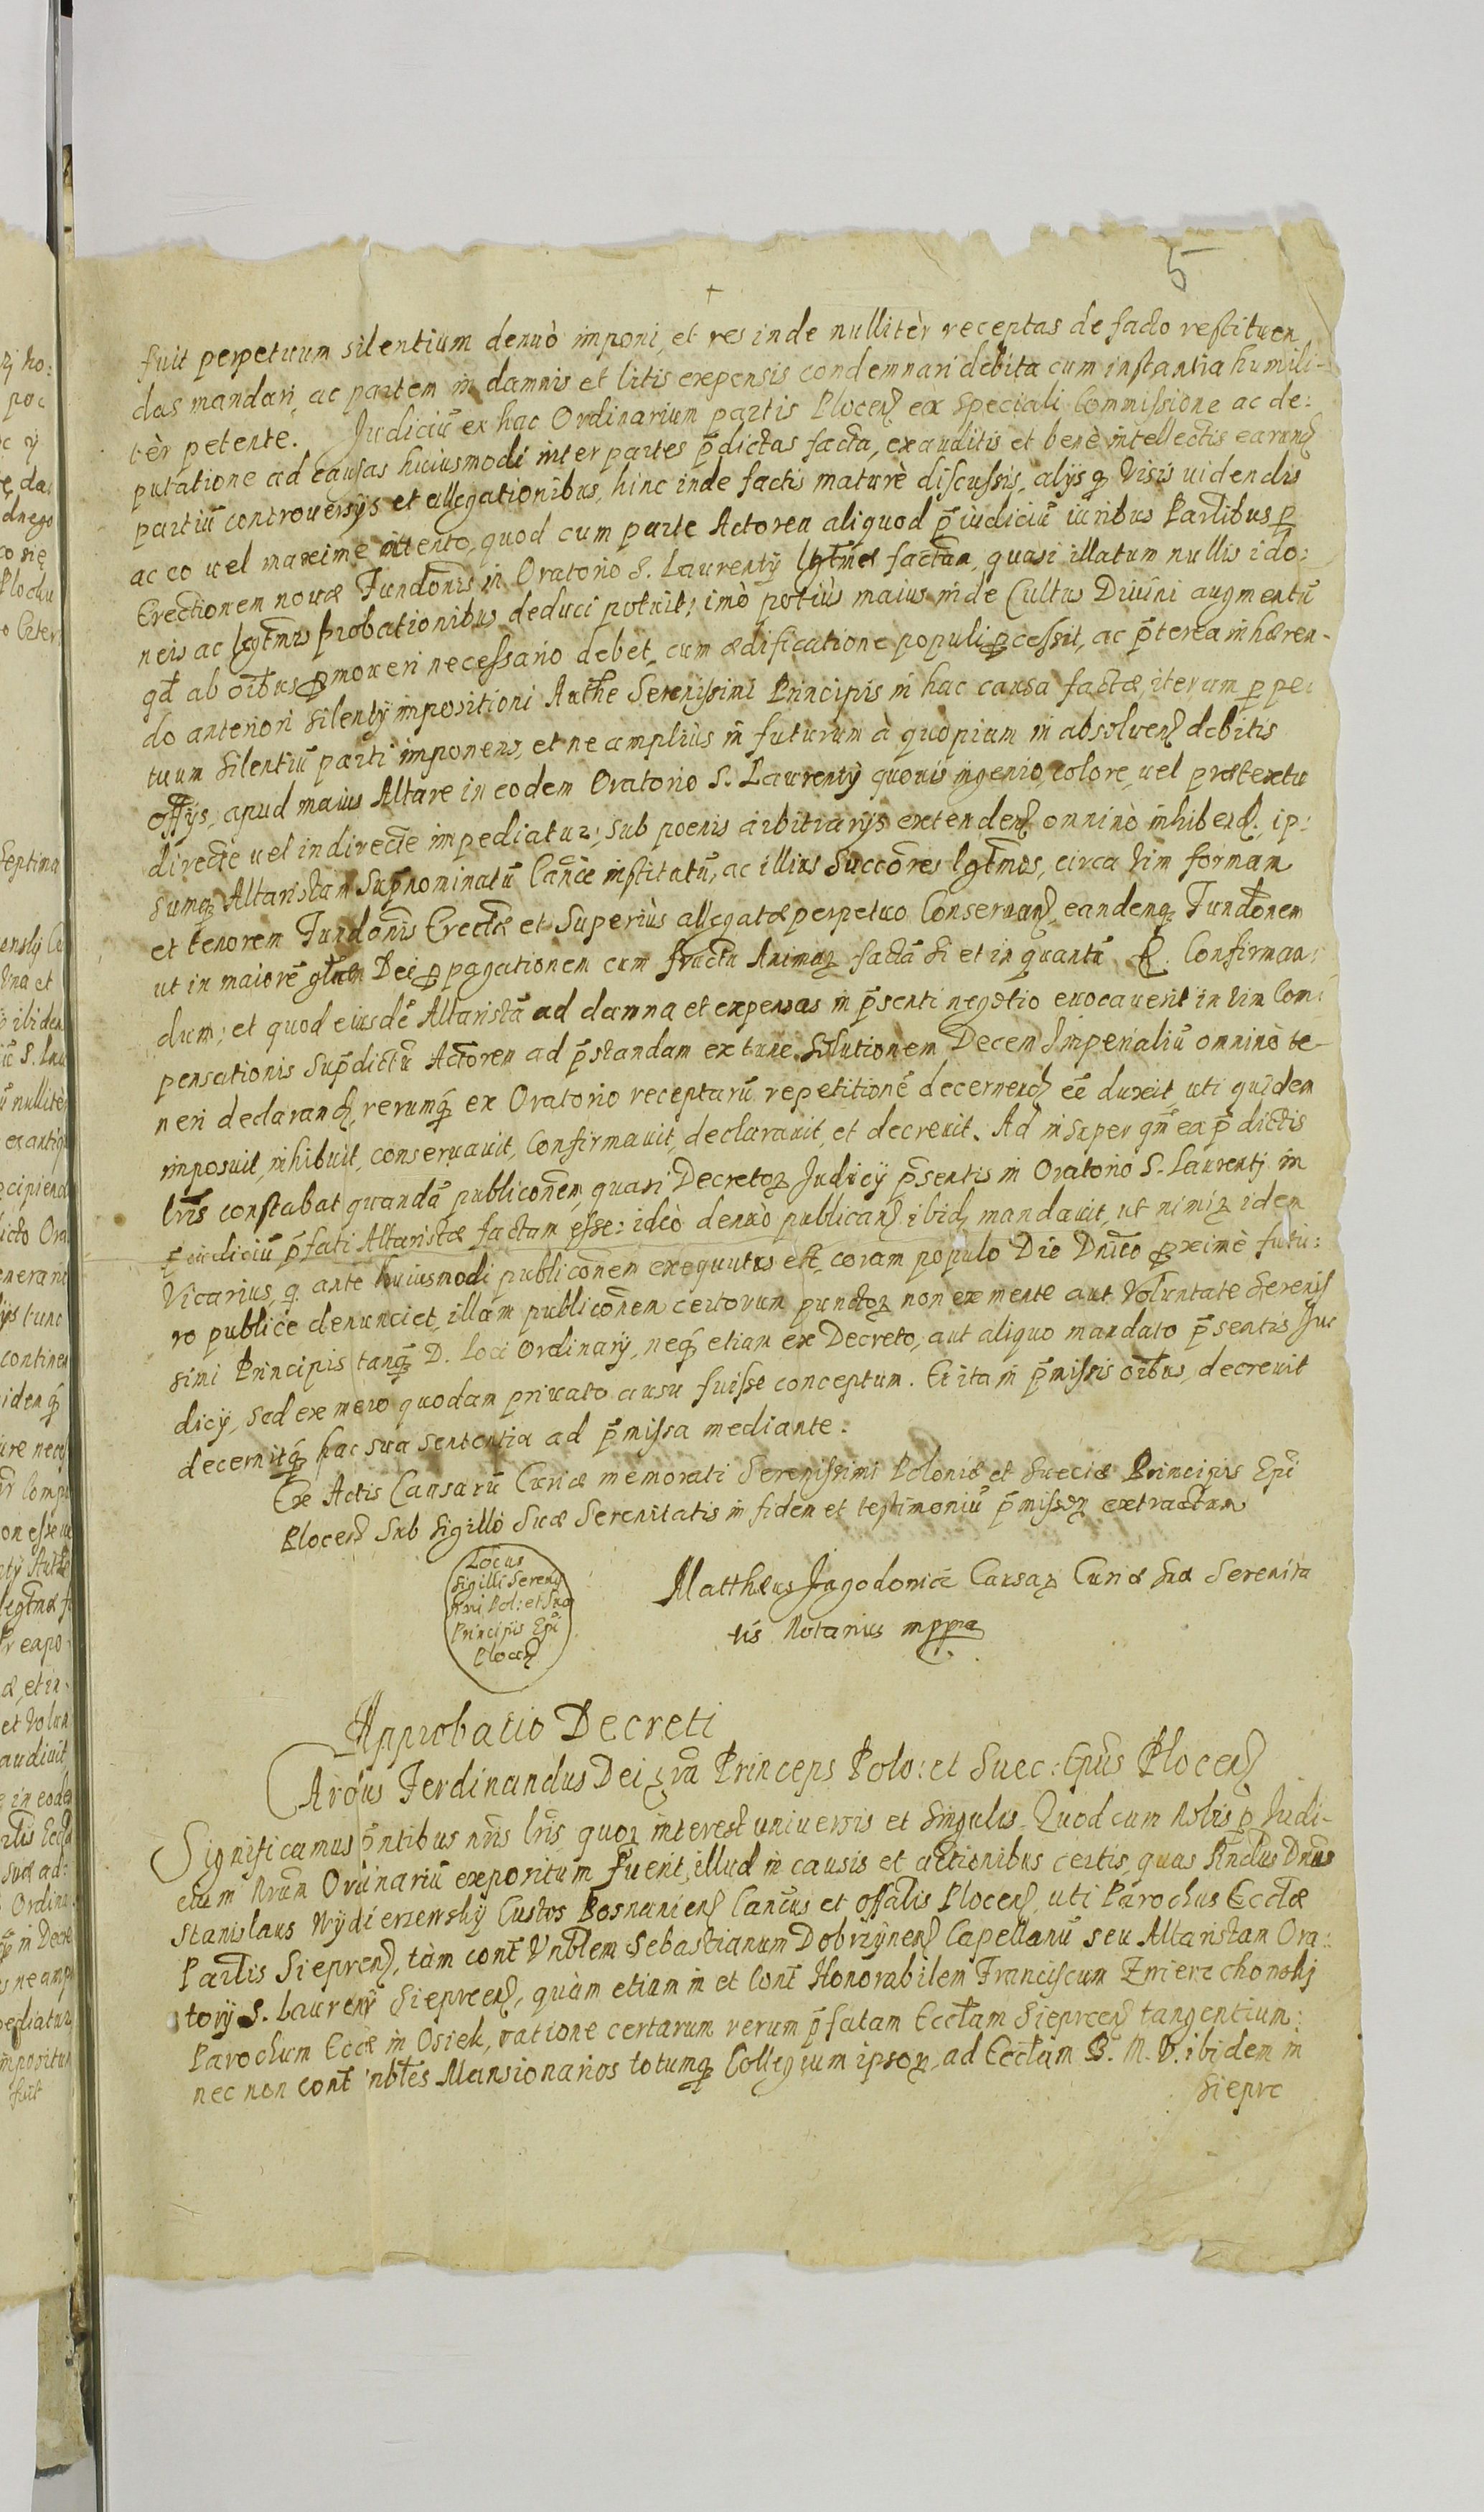 5
fuit perpetuum silentium denuò imponi, et res inde nullitèr receptas de facto restituen
das mandari, ac partem in damnis et litis expensis condemnari debita cum instantia humili-
tèr petente. Judiciū ex hac Ordinarium partis Plocen̄ ex speciali Commissione ac de:
putatione ad causas huiusmodi inter partes p̄dictas facta, exauditis et benè intellectis earund
partiū controuersijs et allegationibus, hinc inde factis maturè discussis, alijsq; visis uidendis
ac eo uel maxime attento, quod cum parte Actorea aliquod p̄iudiciū iuribus Par̄libus p
Erectionem nouæ Fundōnis in Oratorio S. Laurentij lgt̄mè factam, quasi illatum nullis ido:
neis ac lgt̄mis probationibus deduci potuit; imò potiùs maius inde Cultus Diuini augmentū
qd̄ ab oībus promoueri necessario debet, cum ædificatione populi processit, ac p̄terea inhæren-
do anteriori silentij impositioni Auth̄e Serenissimi Principis in hac causa factæ, iterum perpe
tuum silentiū parti imponens, et ne ampliùs in futurum à quopiam in absoluen̄ debitis
offijs, apud maius Altare in eodem Oratorio S. Laurentij quouis ingenio, colore, uel prætextu
directè uel indirectè impediatur; sub poenis arbitrarijs extenden̄ omninò inhiben̄d, ip:
sumq; Altaristam sup̄nominatū Can̄cè institutū, ac illius Succōres lgt̄mos, circa vim formam
et tenorem Fundōnis Erectæ et Superiùs allegatæ perpetuo Conseruan̄, eandemq; Fundōnem
ut in maiorē glāē Dei propagationem cum fructu Animar; factā si et in quantū R. Confirman:
dum; et quod eiusdē Altaristā ad damna et expensas in p̄senti negotio euocauerit in vim Com:
pensationis sup̄dictū Actorem ad p̄standam ex tunc solutionem Decem Imperialiū omninò te-
neri declarand, rerumq; ex Oratorio receptarū repetitionē decernend eē duxit, uti quidem
imposuit, inhibuit, conseruauit, Confirmauit, declarauit, et decreuit. Ad insuper qm̄ ex p̄dictis
lrīs constabat quandā publicōnem, quasi Decretor; Judicij p̄sentis in Oratorio S. Laurentj in
p̄iudiciū p̄fati Altaristæ factam esse: ideò denuò publican̄ ibid; mandauit, ut nimir; idem
Vicarius, q. ante huiusmodi publicōnem exequutus est, coram populo Die Dnīco proximè futu:
ro publicè denunciet, illam publicōnem certorum punctor; non ex mente aut Voluntate Serenis
simi Principis tanq; D. Loci Ordinarij, neq; etiam ex Decreto, aut aliquo mandato p̄sentis Ju
dicij, sed ex mero quodam priuato ausu fuisse conceptum. Et ita in p̄missis oībus, decreuit
decernitq; hac sua sententia ad p̄missa mediante.
Ex Actis Causarū Curiæ memorati Serenissimi Poloniæ et Sueciæ Principis Epī
Plocen̄ sub sigillo Suæ Serenitatis in fidem et testimoniū p̄missor; extractum
Locus
Sigilli Sereniss
imi Pol: et Sue
Principis Epī
Plocen̄
Matthæus Jagodowic Causar; Curiæ Suæ Serenita
tis Notarius mppa
Approbatio Decreti
Carolus Ferdinandus Dei gr̄a Princeps Polo: et Suec: Ep̄us Plocen̄
Significamus p̄ntibus nr̄is lrīs, quor; interest uniuersis et singulis. Quod cum Nobis p Judi-
cium Nrūm Ordinariū expositum fuerit, illud in causis et actionibus certis, quas Rndus Dnus
Stanislaus Wydzierzewsky Custos Posnanien̄ Canc̄us et offālis Plocen̄, uti Parochus Ecclæ
Par̄lis Sieprcen̄, tàm cont̄ Vnblem Sebastianum Dobrzynen̄ Capellanū seu Altaristam Ora:
torij S. Laurentij Sieprcen̄, quàm etiam in et Cont̄ Honorabilem Franciscum Zmierzchowskj
Parochum Eccæ in Osiek, ratione certarum rerum p̄fatam Ecclam Sieprcen̄ tangentium:
nec non cont̄ Vnbles Mansionarios totumq; Collegium ipsor; ad Ecclam B. M. V. ibidem in
Sieprc